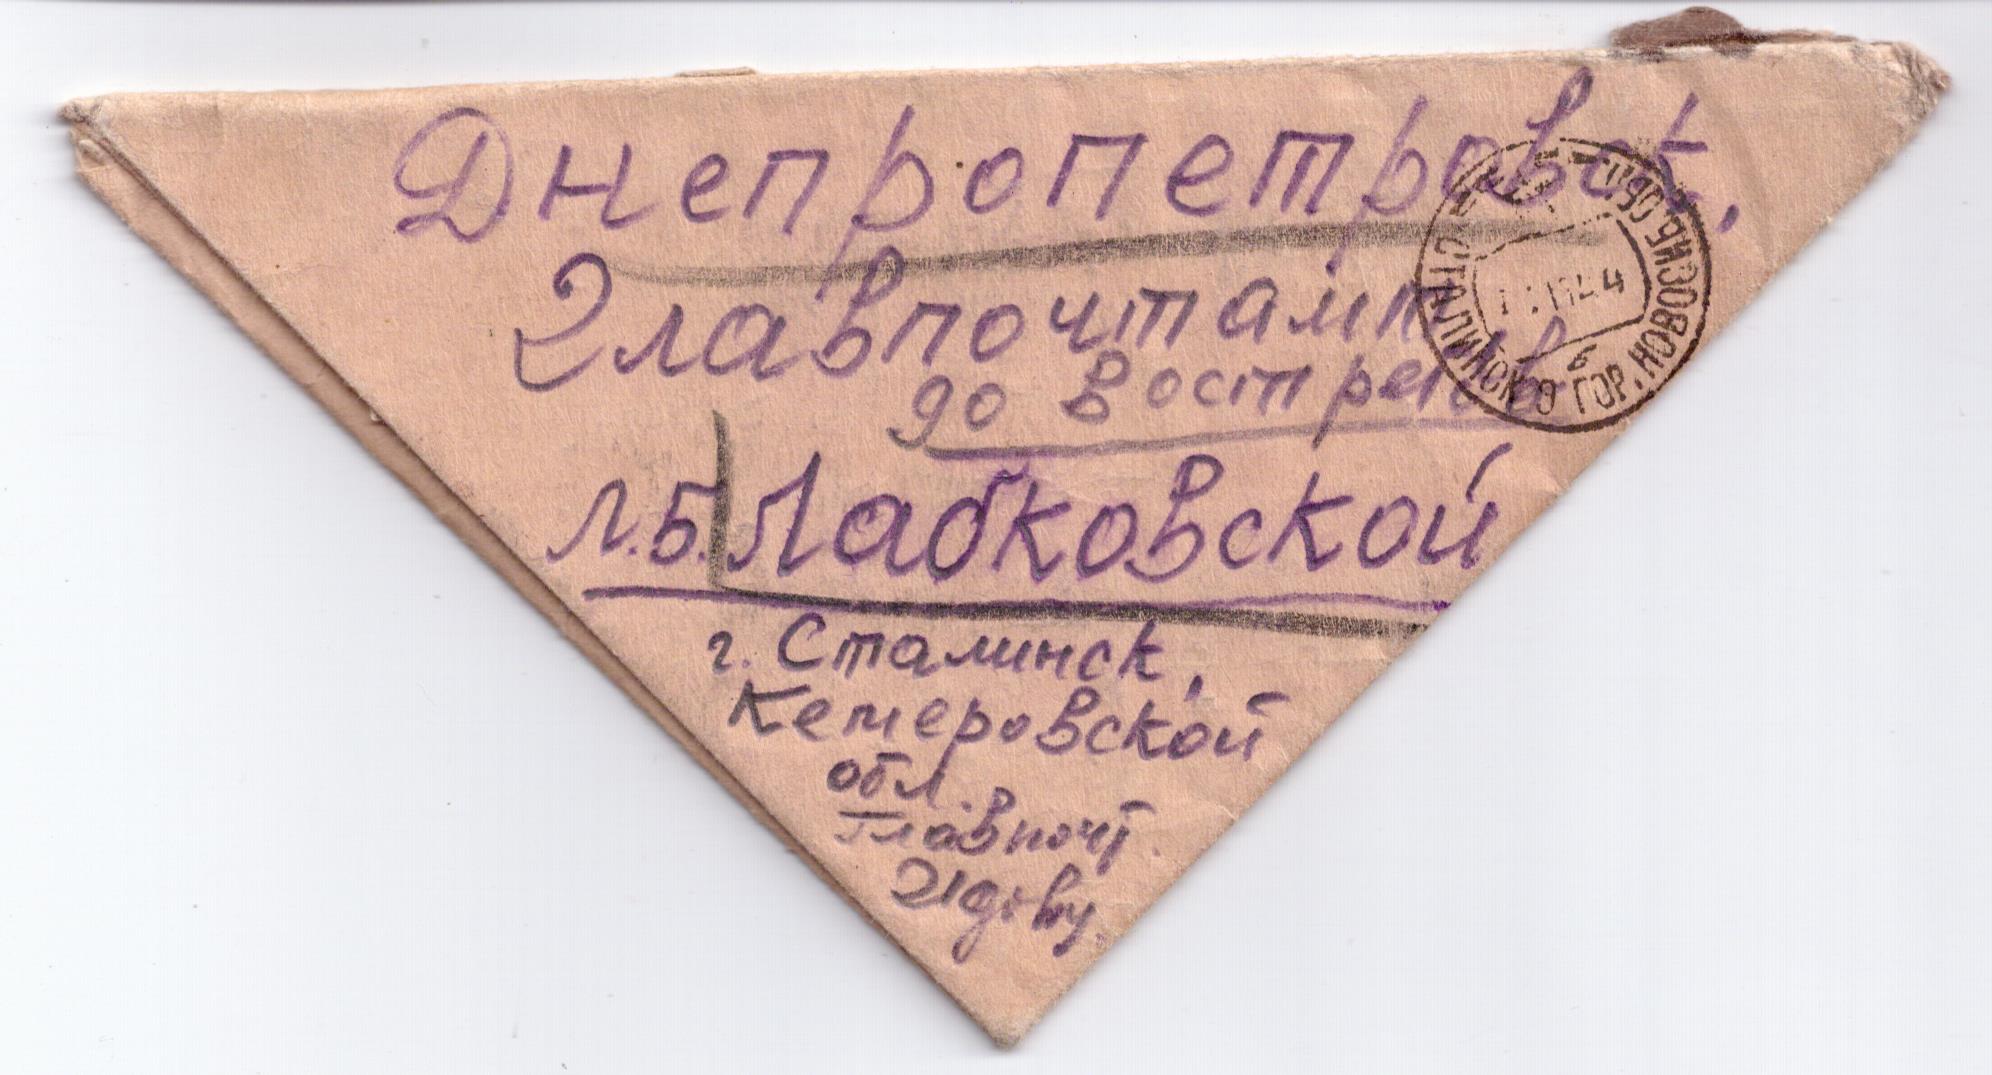 Днепропетровск,
Главпочтамт
до востреб
Л.Б. Лабковской
г. Сталинск,
Кемеровской
обл.
Главпочт.
СТАЛИНСК О ГОР. НОВОСИБ. ОБЛ.
44
б